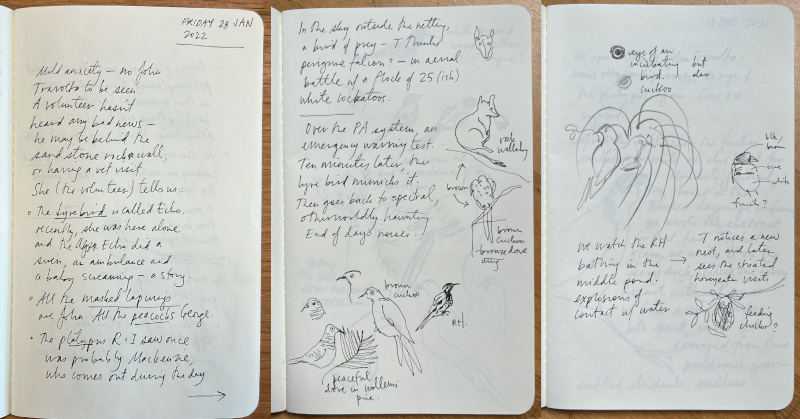 FRIDAY 28 JAN
2022
Mild anxiety – no John
Travolta to be seen
A volunteer hasn't
heard any bad news –
he may be behind the
sandstone rock wall,
or having a vet visit.
She (the volunteer) tells us:
• The lyrebird is called Echo.
recently, she was here alone
and the Echo did a
siren, an ambulance and
a baby screaming – a story.
• All the masked lapwings
are John. All the peacocks George.
• The platypus R + I saw once
was probably Mackenzie,
who comes out during the day
In the sky outside the netting,
a bird of prey – T thinks
peregrine falcon? – in aerial
battle w/ a flock of 25 (ish)
white cockatoos.
Over the PA system, an
emergency warning test.
Ten minutes later the
lyre bird mimicks it.
Then goes back to spectral,
otherworldly haunting
End of days noises.
rock
wallaby
brown
brown
cuckoo
bronze dove
brown
cuckoo
RH.
peaceful
dove in wollemi
pine.
eye of an
incubating but
bird. dove
cuckoo
brown
white
finch?
We watch the RH
bathing in the
middle pond.
explosions of
contact w/ water
T notices a new
nest, and later
sees the striated
honeyeater visits
feeding
chicks?